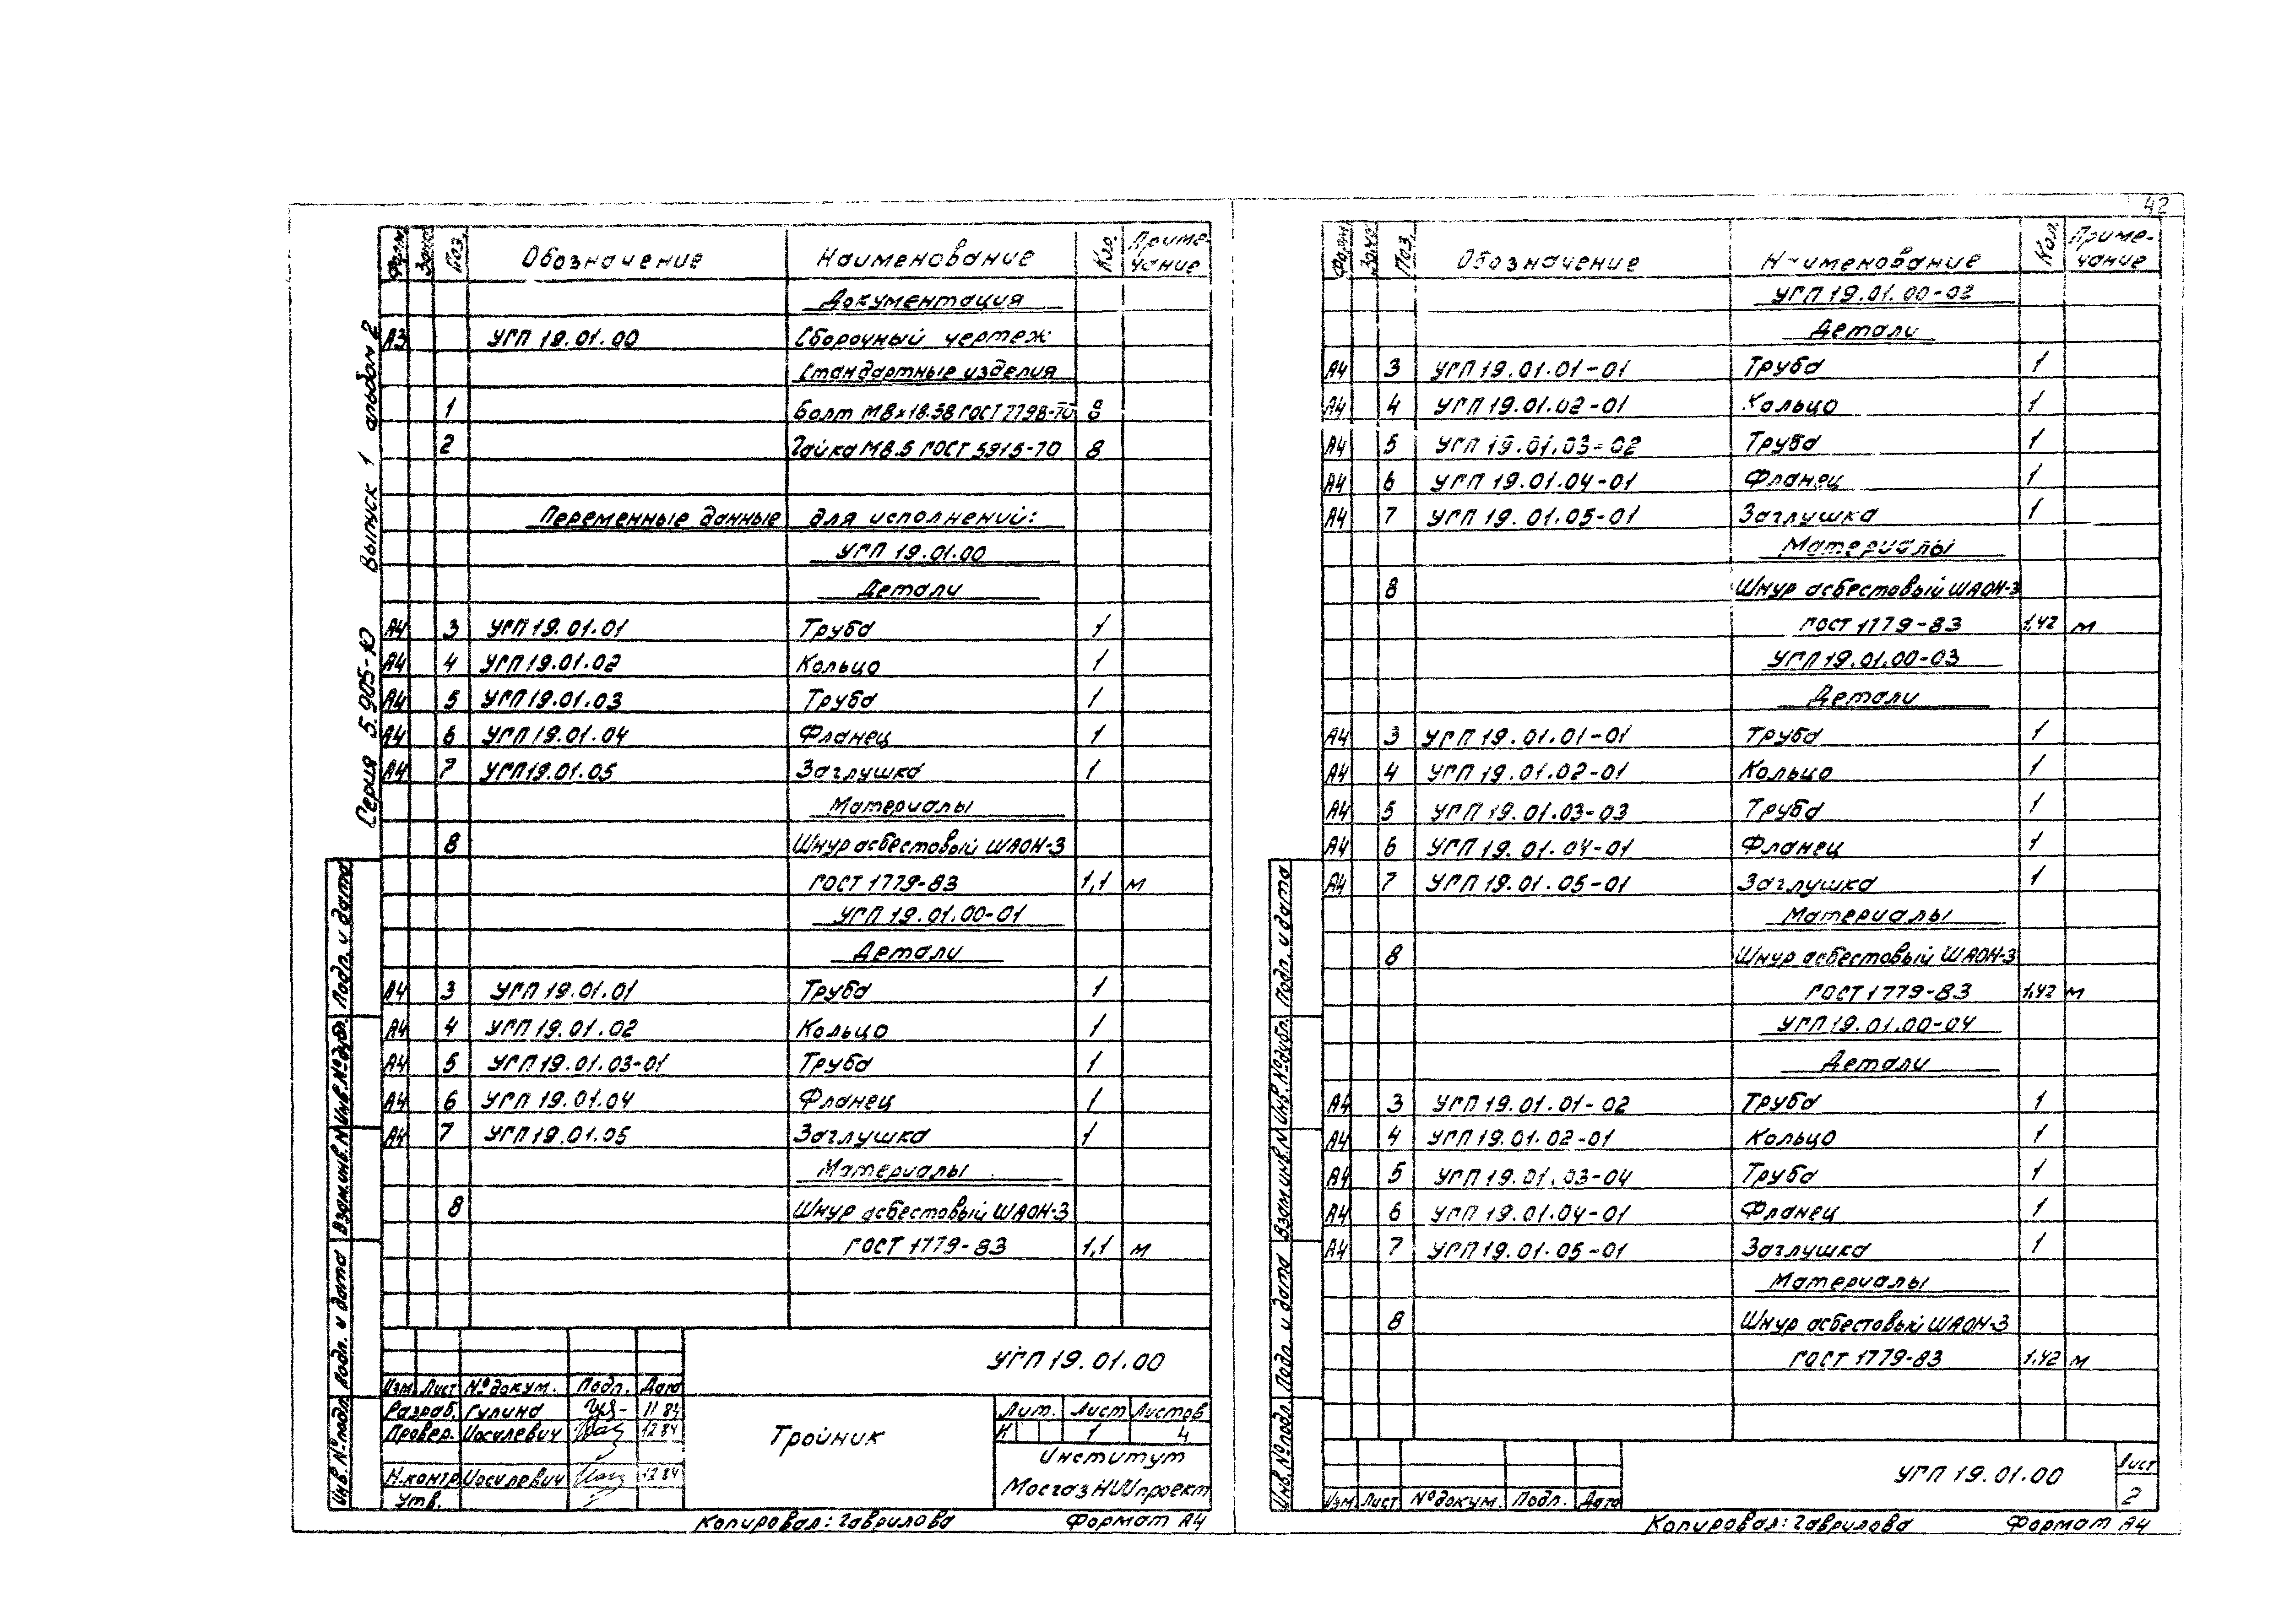 42
Серия 5.905-10 Выпуск 1 альбом 2
Форм. Зона Поз. Обозначение Наименование Кол. Приме-
чание
Документация
А3 УГП 19.01.00 Сборочный чертеж
Стандартные изделия
1 Болт М8х18.58 ГОСТ 7798-70 8
2 Гайка М8.5 ГОСТ 5915-70 8
Переменные данные для исполнений:
УГП 19.01.00
Детали
А4 3 УГП 19.01.01 Труба 1
А4 4 УГП 19.01.02 Кольцо 1
А4 5 УГП 19.01.03 Труба 1
А4 6 УГП 19.01.04 Фланец 1
А4 7 УГП 19.01.05 Заглушка 1
Материалы
8 Шнур асбестовый ШАОН-3
ГОСТ 1779-83 1,1 м
УГП 19.01.00-01
Детали
А4 3 УГП 19.01.01 Труба 1
А4 4 УГП 19.01.02 Кольцо 1
А4 5 УГП 19.01.03-01 Труба 1
А4 6 УГП 19.01.04 Фланец 1
А4 7 УГП 19.01.05 Заглушка 1
Материалы
8 Шнур асбестовый ШАОН-3
ГОСТ 1779-83 1,1 м
Инв.№подл. Подп. и дата Взам.инв.№ Инв.№дубл. Подп. и дата
УГП 19.01.00
Изм Лист №докум. Подп. Дата
Разраб. Гулина 11 84
Провер. Иосилевич 12 84
Н.контр. Иосилевич 12 84
Утв.
Тройник
Лит. Лист Листов
И 1 4
Институт
МосгазНИИпроект
Копировал: Гаврилова Формат А4
Форм. Зона Поз. Обозначение Наименование Кол. Приме-
чание
УГП 19.01.00-02
Детали
А4 3 УГП 19.01.01-01 Труба 1
А4 4 УГП 19.01.02-01 Кольцо 1
А4 5 УГП 19.01.03-02 Труба 1
А4 6 УГП 19.01.04-01 Фланец 1
А4 7 УГП 19.01.05-01 Заглушка 1
Материалы
8 Шнур асбестовый ШАОН-3
ГОСТ 1779-83 1,42 м
УГП 19.01.00-03
Детали
А4 3 УГП 19.01.01-01 Труба 1
А4 4 УГП 19.01.02-01 Кольцо 1
А4 5 УГП 19.01.03-03 Труба 1
А4 6 УГП 19.01.04-01 Фланец 1
А4 7 УГП 19.01.05-01 Заглушка 1
Материалы
8 Шнур асбестовый ШАОН-3
ГОСТ 1779-83 1,42 м
УГП 19.01.00-04
Детали
А4 3 УГП 19.01.01-02 Труба 1
А4 4 УГП 19.01.02-01 Кольцо 1
А4 5 УГП 19.01.03-04 Труба 1
А4 6 УГП 19.01.04-01 Фланец 1
А4 7 УГП 19.01.05-01 Заглушка 1
Материалы
8 Шнур асбестовый ШАОН-3
ГОСТ 1779-83 1,42 м
Инв.№подл. Подп. и дата Взам.инв.№ Инв.№дубл. Подп. и дата
Изм Лист №докум. Подп. Дата
УГП 19.01.00
Лист
2
Копировал: Гаврилова Формат А4